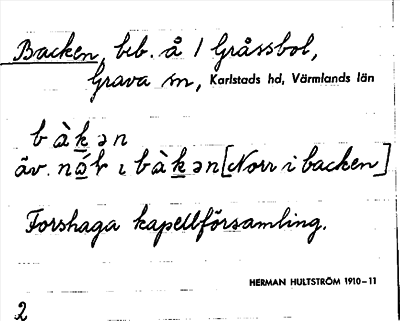 Backen, beb. å 1 Gråssbol,
Grava sn, Karlstads hd, Värmlands län
b à k ə n
äv. når ɩ b à k ə n [Norr i backen]
Forshaga kapellförsamling.
HERMAN HULTSTRÖM 1910–11
2